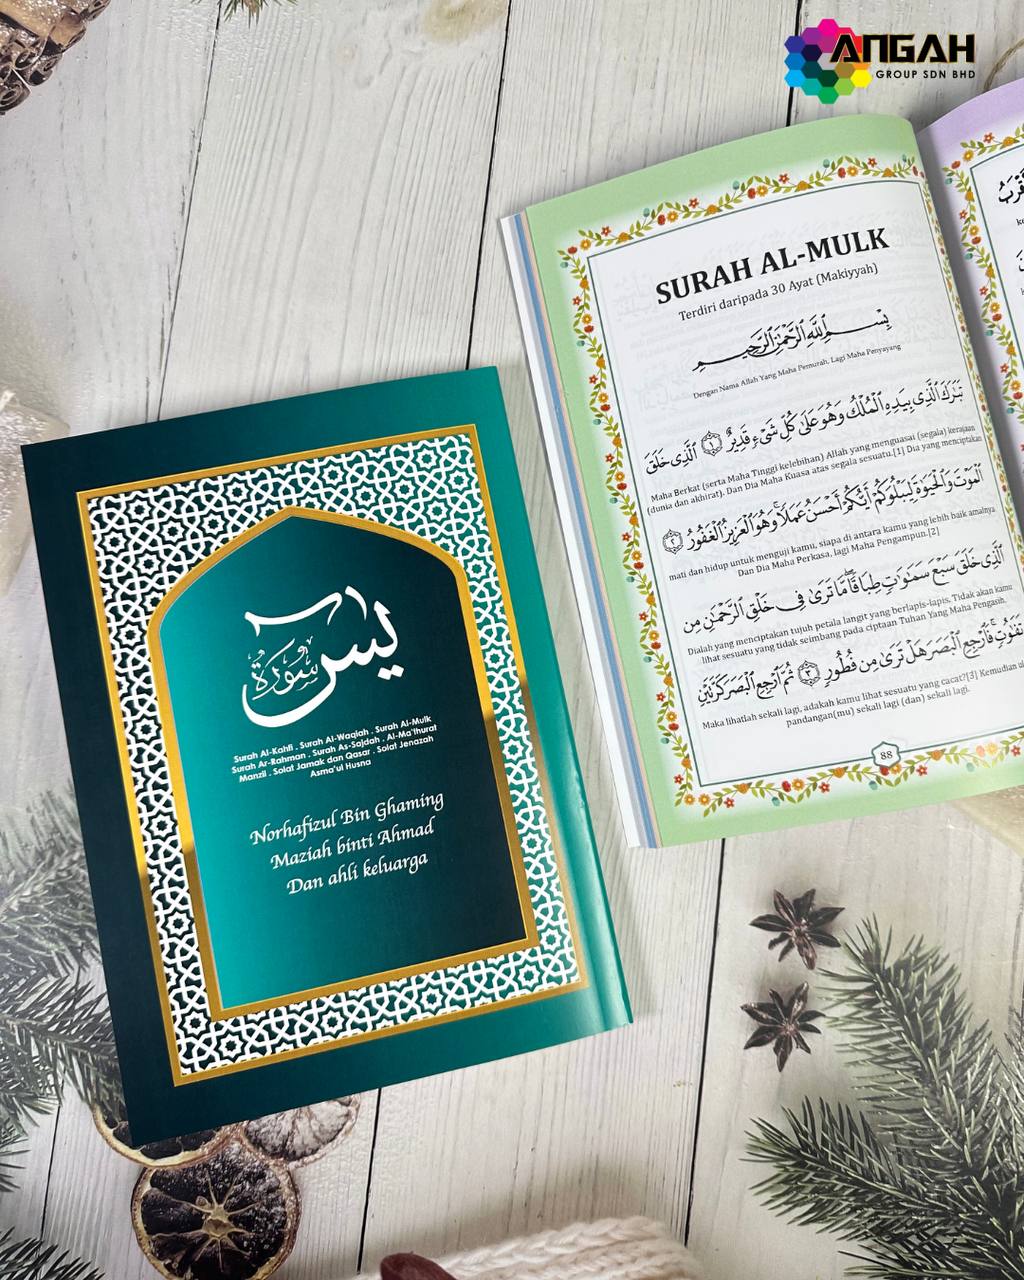 ANGAH
GROUP SDN BHD
يس
سورة
Surah Al-Kahfi . Surah Al-Waqiah . Surah Al-Mulk
Surah Ar-Rahman . Surah As-Sajdah . Al-Ma'thurat
Manzil . Solat Jamak dan Qasar . Solat Jenazah
Asma'ul Husna
Norhafizul Bin Ghaming
Maziah binti Ahmad
Dan ahli keluarga
SURAH AL-MULK
Terdiri daripada 30 Ayat (Makiyyah)
بِسْمِ ٱللَّهِ ٱلرَّحْمَٰنِ ٱلرَّحِيمِ
Dengan Nama Allah Yang Maha Pemurah, Lagi Maha Penyayang
تَبَٰرَكَ ٱلَّذِى بِيَدِهِ ٱلْمُلْكُ وَهُوَ عَلَىٰ كُلِّ شَىْءٍ قَدِيرٌ ١ ٱلَّذِى خَلَقَ
Maha Berkat (serta Maha Tinggi kelebihan) Allah yang menguasai (segala) kerajaan
(dunia dan akhirat). Dan Dia Maha Kuasa atas segala sesuatu.[1] Dia yang menciptakan
ٱلْمَوْتَ وَٱلْحَيَوٰةَ لِيَبْلُوَكُمْ أَيُّكُمْ أَحْسَنُ عَمَلًا ۚ وَهُوَ ٱلْعَزِيزُ ٱلْغَفُورُ ٢
mati dan hidup untuk menguji kamu, siapa di antara kamu yang lebih baik amalnya
Dan Dia Maha Perkasa, lagi Maha Pengampun.[2]
ٱلَّذِى خَلَقَ سَبْعَ سَمَٰوَٰتٍ طِبَاقًا ۖ مَّا تَرَىٰ فِى خَلْقِ ٱلرَّحْمَٰنِ مِن
Dialah yang menciptakan tujuh petala langit yang berlapis-lapis. Tidak akan kamu
lihat sesuatu yang tidak seimbang pada ciptaan Tuhan Yang Maha Pengasih.
تَفَٰوُتٍ ۖ فَٱرْجِعِ ٱلْبَصَرَ هَلْ تَرَىٰ مِن فُطُورٍ ٣ ثُمَّ ٱرْجِعِ ٱلْبَصَرَ كَرَّتَيْنِ
Maka lihatlah sekali lagi, adakah kamu lihat sesuatu yang cacat?[3] Kemudian
pandangan(mu) sekali lagi (dan) sekali lagi.
88